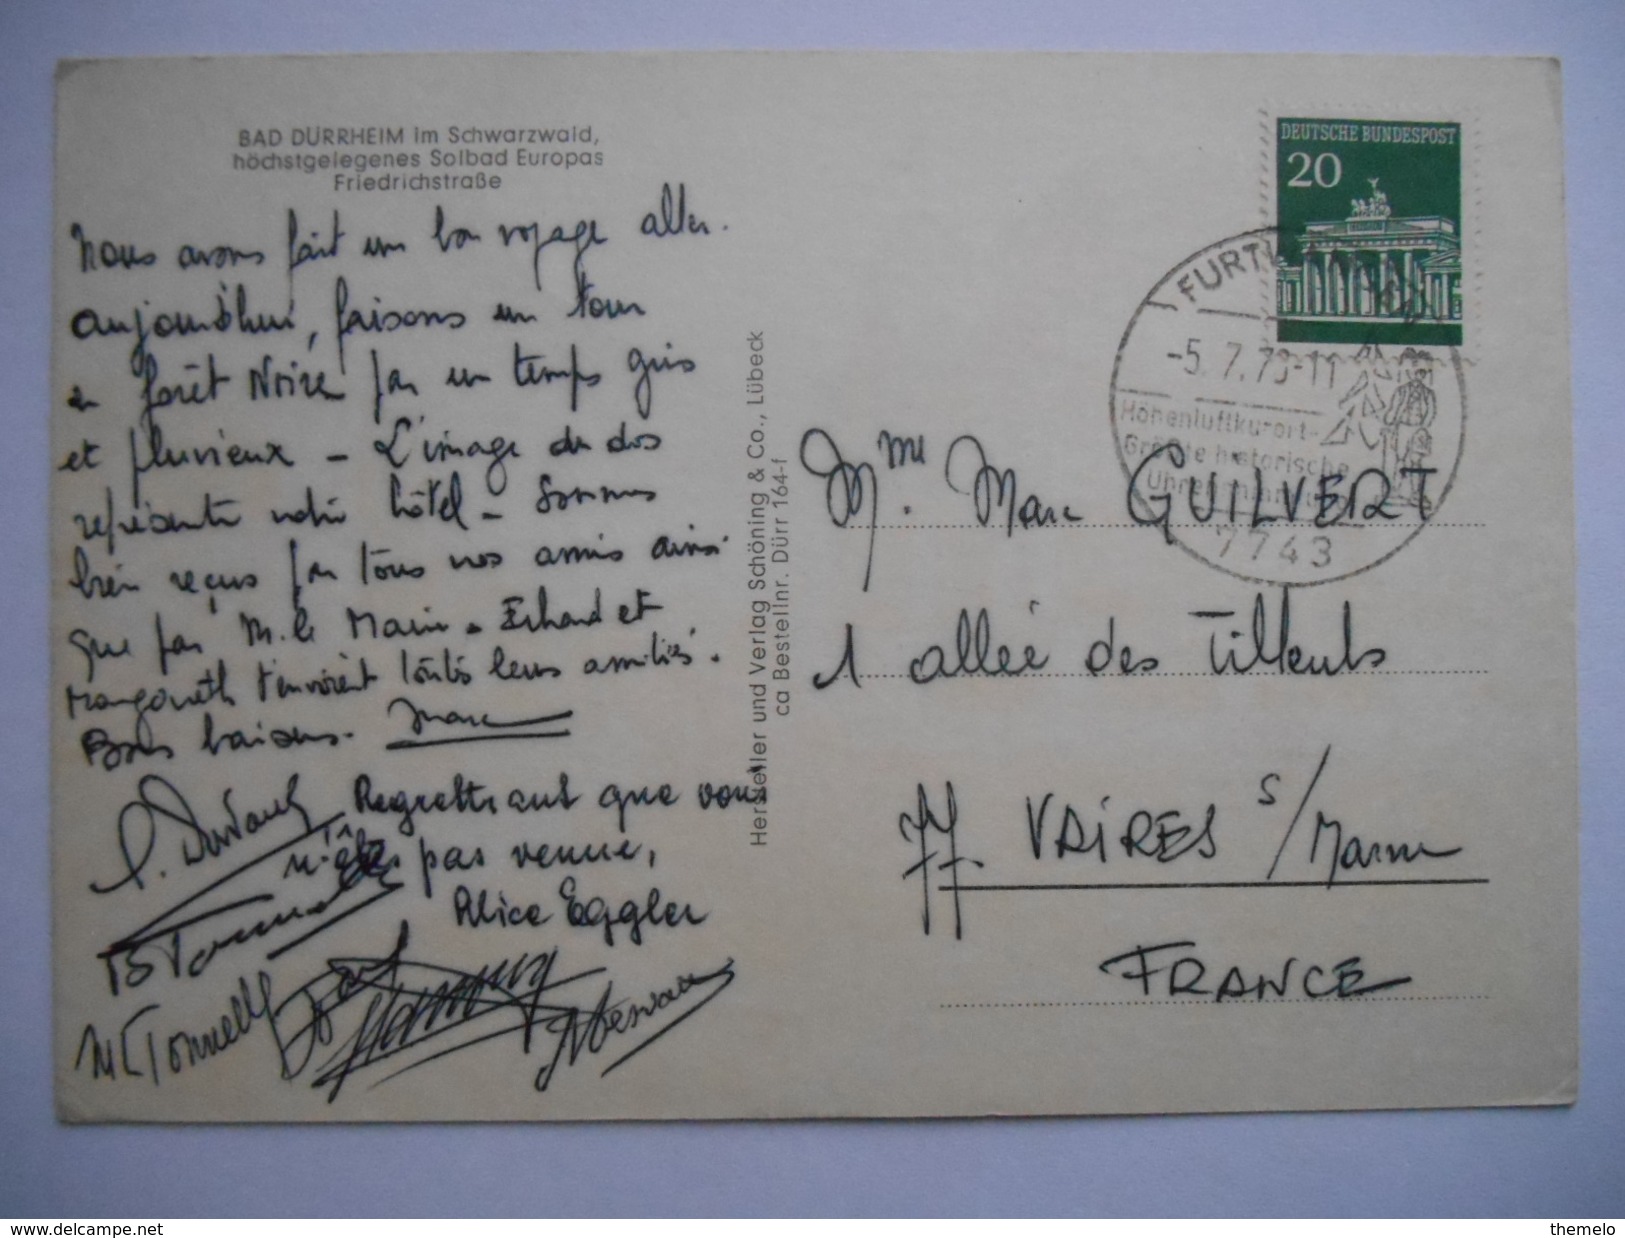 BAD DÜRRHEIM im Schwarzwald,
höchstgelegenes Solbad Europas
Friedrichstraße
Nous avons fait un bon voyage aller.
aujourd'hui, faisons un tour
en forêt Noire par un temps gris
et pluvieux - L'image du dos
représente notre hôtel - Sommes
bien reçus par tous nos amis ainsi
que par M. le Maire - Erhard et
Margareth t'envoient toutes leurs amitiés.
Bons baisers. Marc
Regrettant que vous
n'êtes pas venue,
Alice Eggler
M Tonnelle
Hersteller und Verlag Schöning & Co., Lübeck
ca Bestellnr. Dürr 164-f
DEUTSCHE BUNDESPOST
20
FURTWANGEN
-5.7.73-11
Höhenluftkurort-
Größte historische
7743
Mme. Marc GUILVERT
1 allée des Tilleuls
77 VAIRES s/Marne
FRANCE
https://www.delcampe.net
themelo